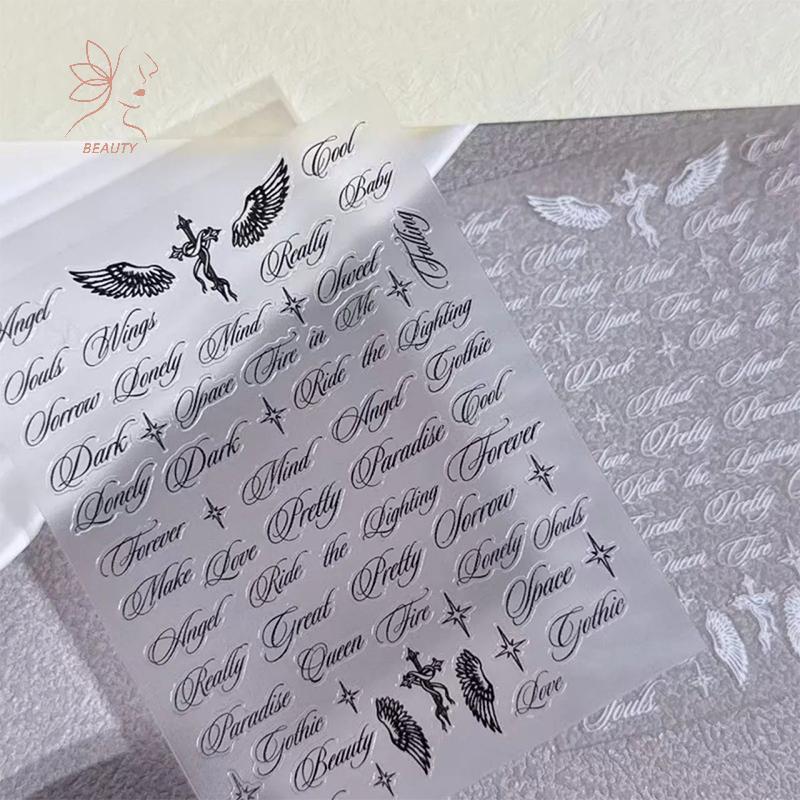 BEAUTY
Cool
Baby
Really
Falling
Angel
Sweet
Souls Wings
Sorrow Lonely Mind
Dark Space Fire in Me
Lonely Dark Ride the Lighting
Mind Angel Gothic
Forever Pretty Paradise Cool
Make Love Forever
Angel Ride the Lighting
Really Great Pretty Sorrow
Paradise Queen Fire Lonely Souls
Gothic Space
Beauty Gothic
Love
Cool
Angel Really
Wings
Lonely Mind
Space Fire in Me
Dark Ride the
Mind Angel
Love Pretty
Ride the Lighting
Great Pretty
Queen Fire
Souls